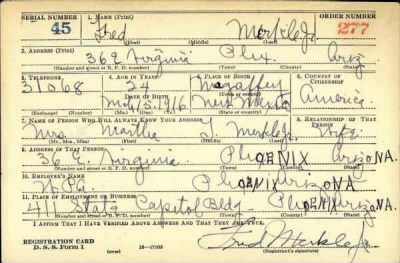 SERIAL NUMBER 1. NAME (Print) ORDER NUMBER
45 Fred Merkle Jr. 277
(First) (Middle) (Last)
2. ADDRESS (Print)
36 E Virginia Phx. Ariz
(Number and street or R. F. D. number) (Town) (County) (State)
3. TELEPHONE 4. AGE IN YEARS 5. PLACE OF BIRTH 6. COUNTRY OF CITIZENSHIP
31068 24
DATE OF BIRTH
New Mexico America
(Exchange) (Number) (Mo.) (Day) (Yr.) (State or country)
7. NAME OF PERSON WHO WILL ALWAYS KNOW YOUR ADDRESS 8. RELATIONSHIP OF THAT PERSON
Mrs. Martha Merkle Jr. Wife
(Mr., Mrs., Miss) (First) (Middle) (Last)
9. ADDRESS OF THAT PERSON
36 E. Virginia PhOENIX ArizoNA.
(Number and street or R. F. D. number) (Town) (County) (State)
10. EMPLOYER'S NAME
W.P.A. PhOENIX ArizoNA
11. PLACE OF EMPLOYMENT OR BUSINESS
411 State Capitol Bldg. PhOENIX ArizoNA.
(Number and street or R. F. D. number) (Town) (County) (State)
I AFFIRM THAT I HAVE VERIFIED ABOVE ANSWERS AND THAT THEY ARE TRUE.
REGISTRATION CARD
D. S. S. Form 1 16—17105 Fred Merkle Jr.
(Registrant's signature)